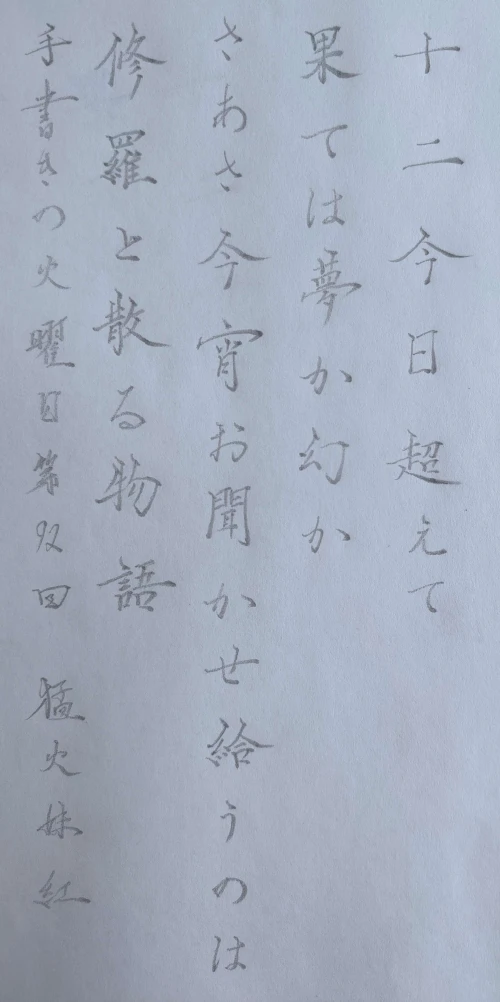 十二今日超えて
果ては夢か幻か
さあさ今宵お聞かせ給うのは
修羅と散る物語
手書きの火曜日第92回 猛火妹紅